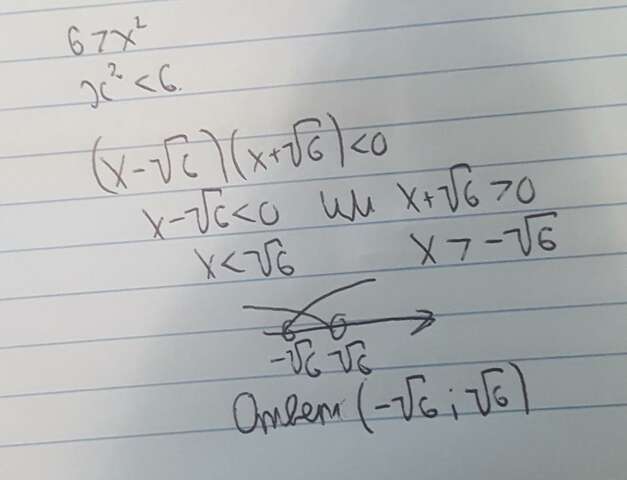 6 > x²
x² < 6
(x-√6)(x+√6)<0
x-√6<0 или x+√6>0
x<√6 x>-√6
-√6 √6
Ответ (-√6; √6)